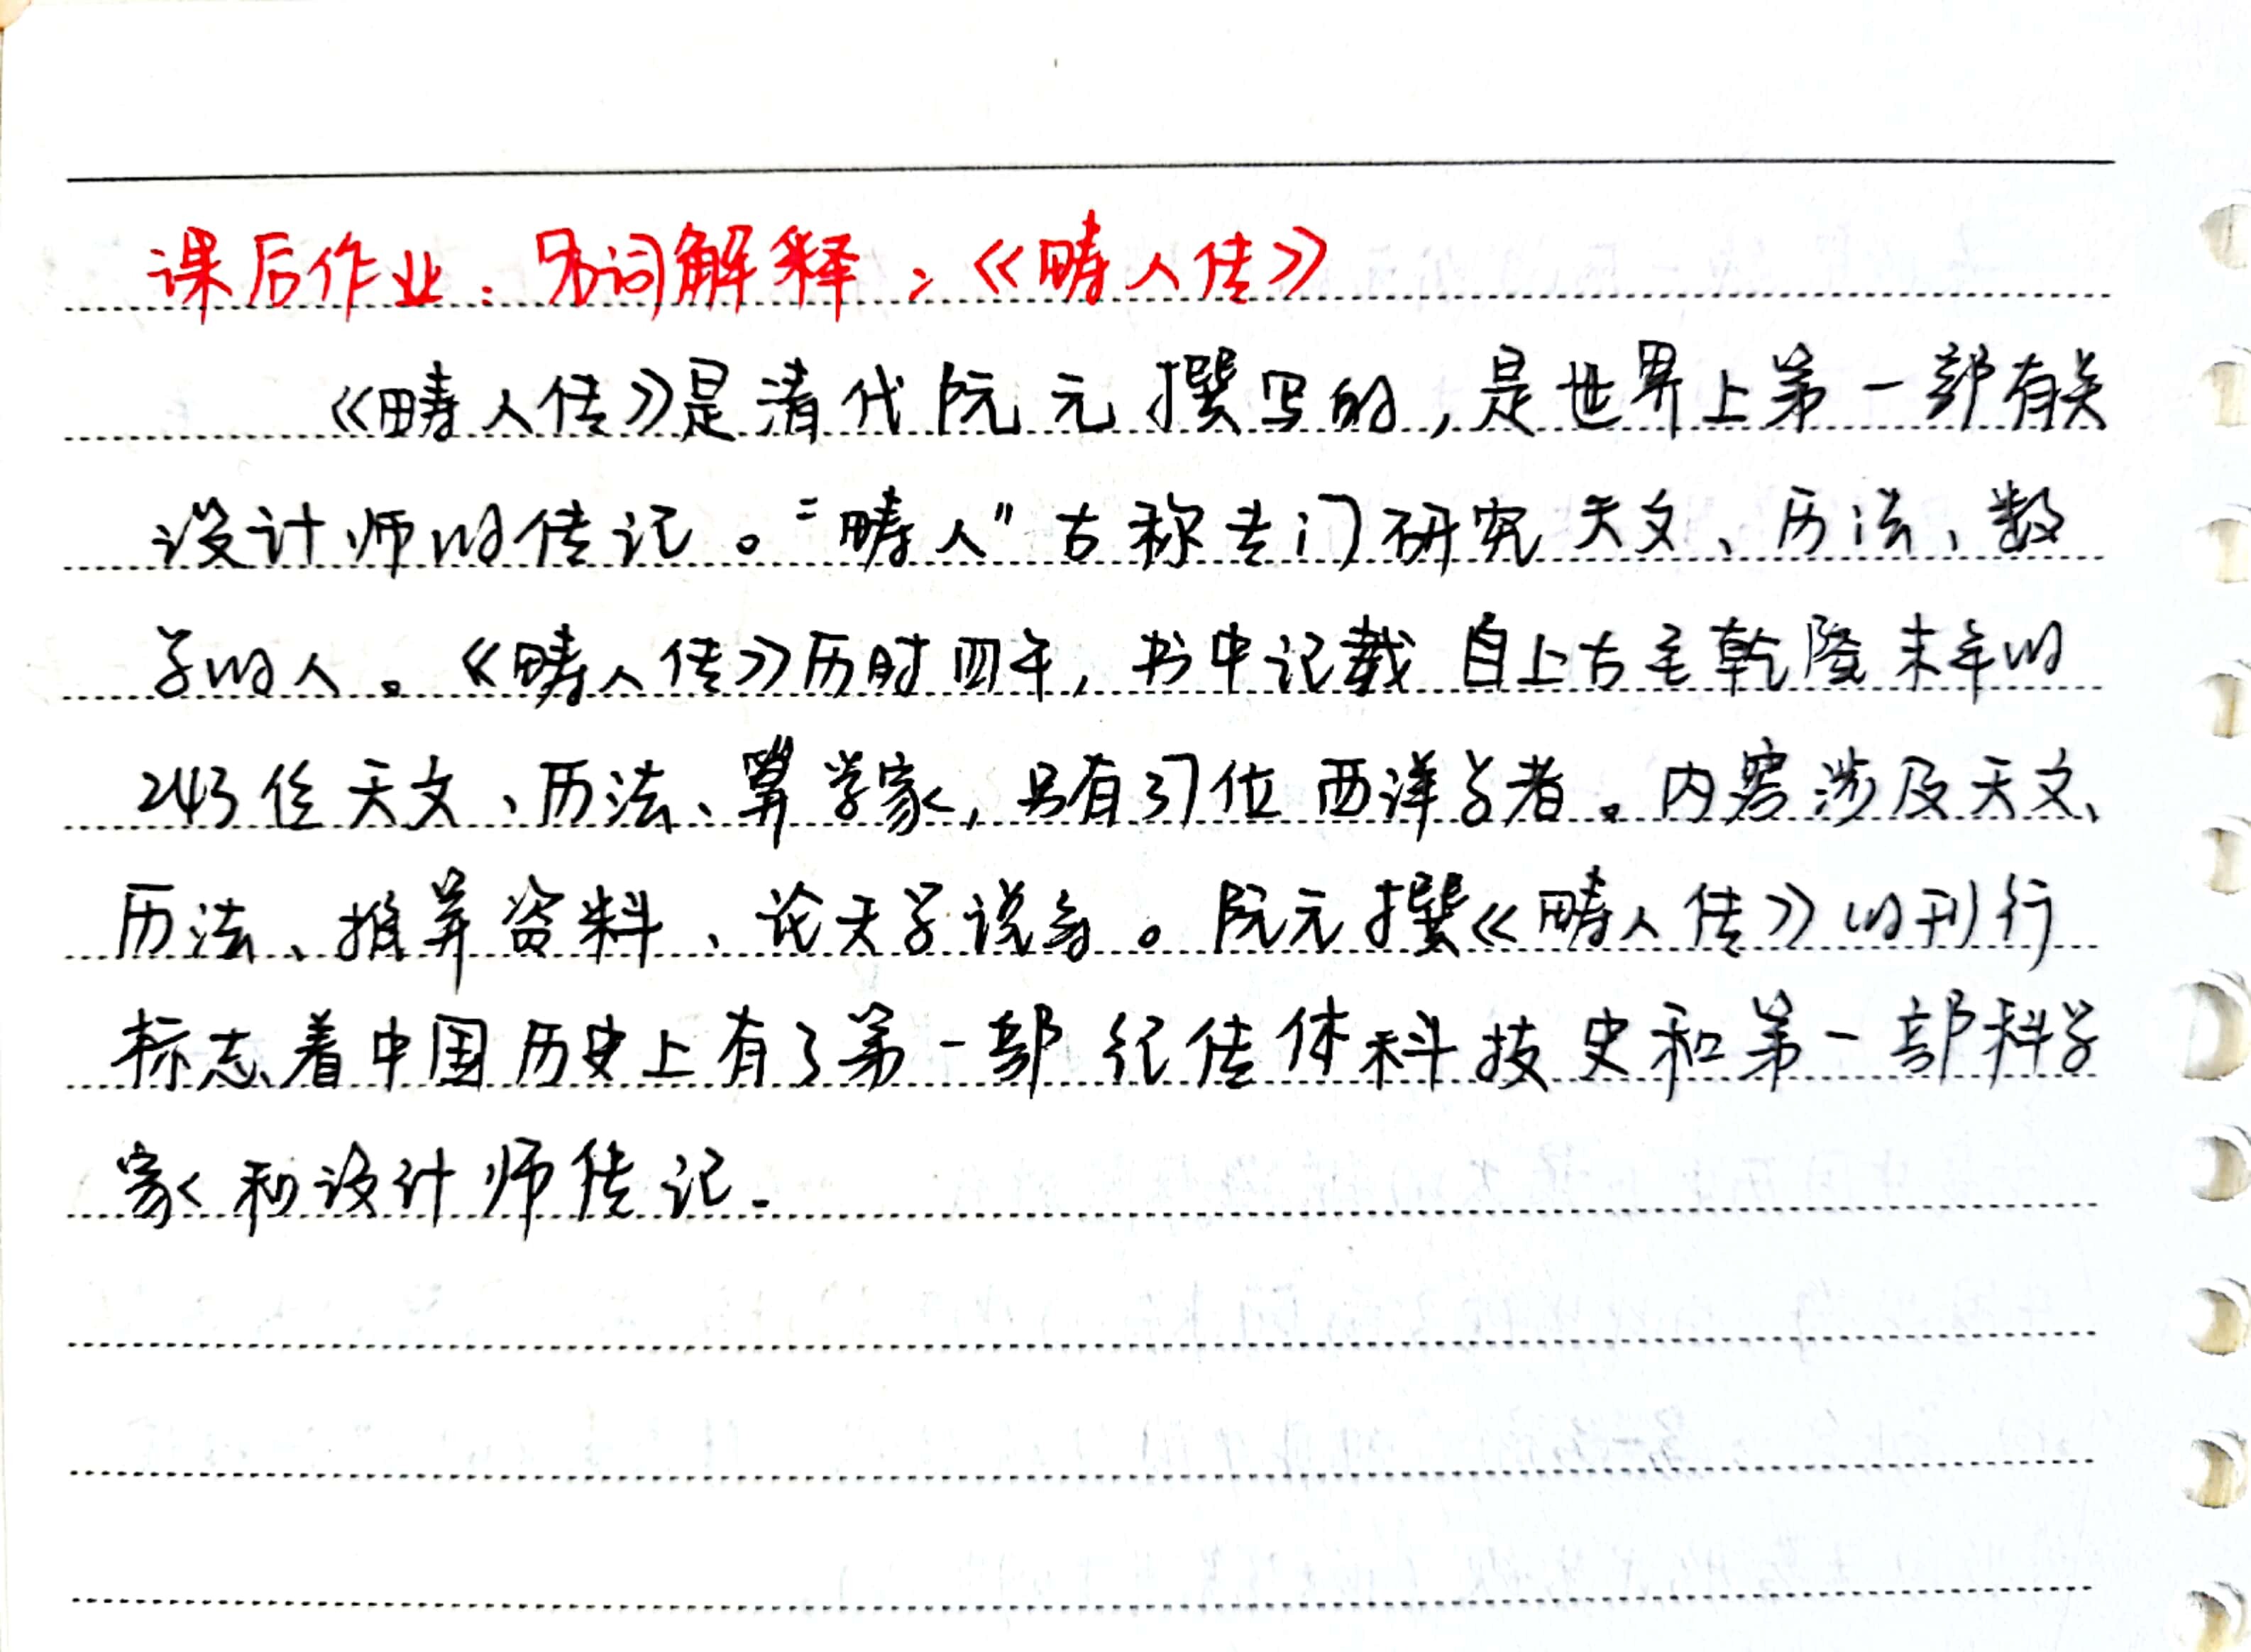 课后作业：名词解释：《畴人传》
《畴人传》是清代阮元撰写的，是世界上第一部有关
设计师的传记。“畴人”古称专门研究天文、历法、数
学的人。《畴人传》历时四年，书中记载自上古至乾隆末年的
243位天文、历法、算学家，另有37位西洋学者。内容涉及天文、
历法、推算资料、论天学说等。阮元撰《畴人传》的刊行
标志着中国历史上有了第一部纪传体科技史和第一部科学
家和设计师传记。